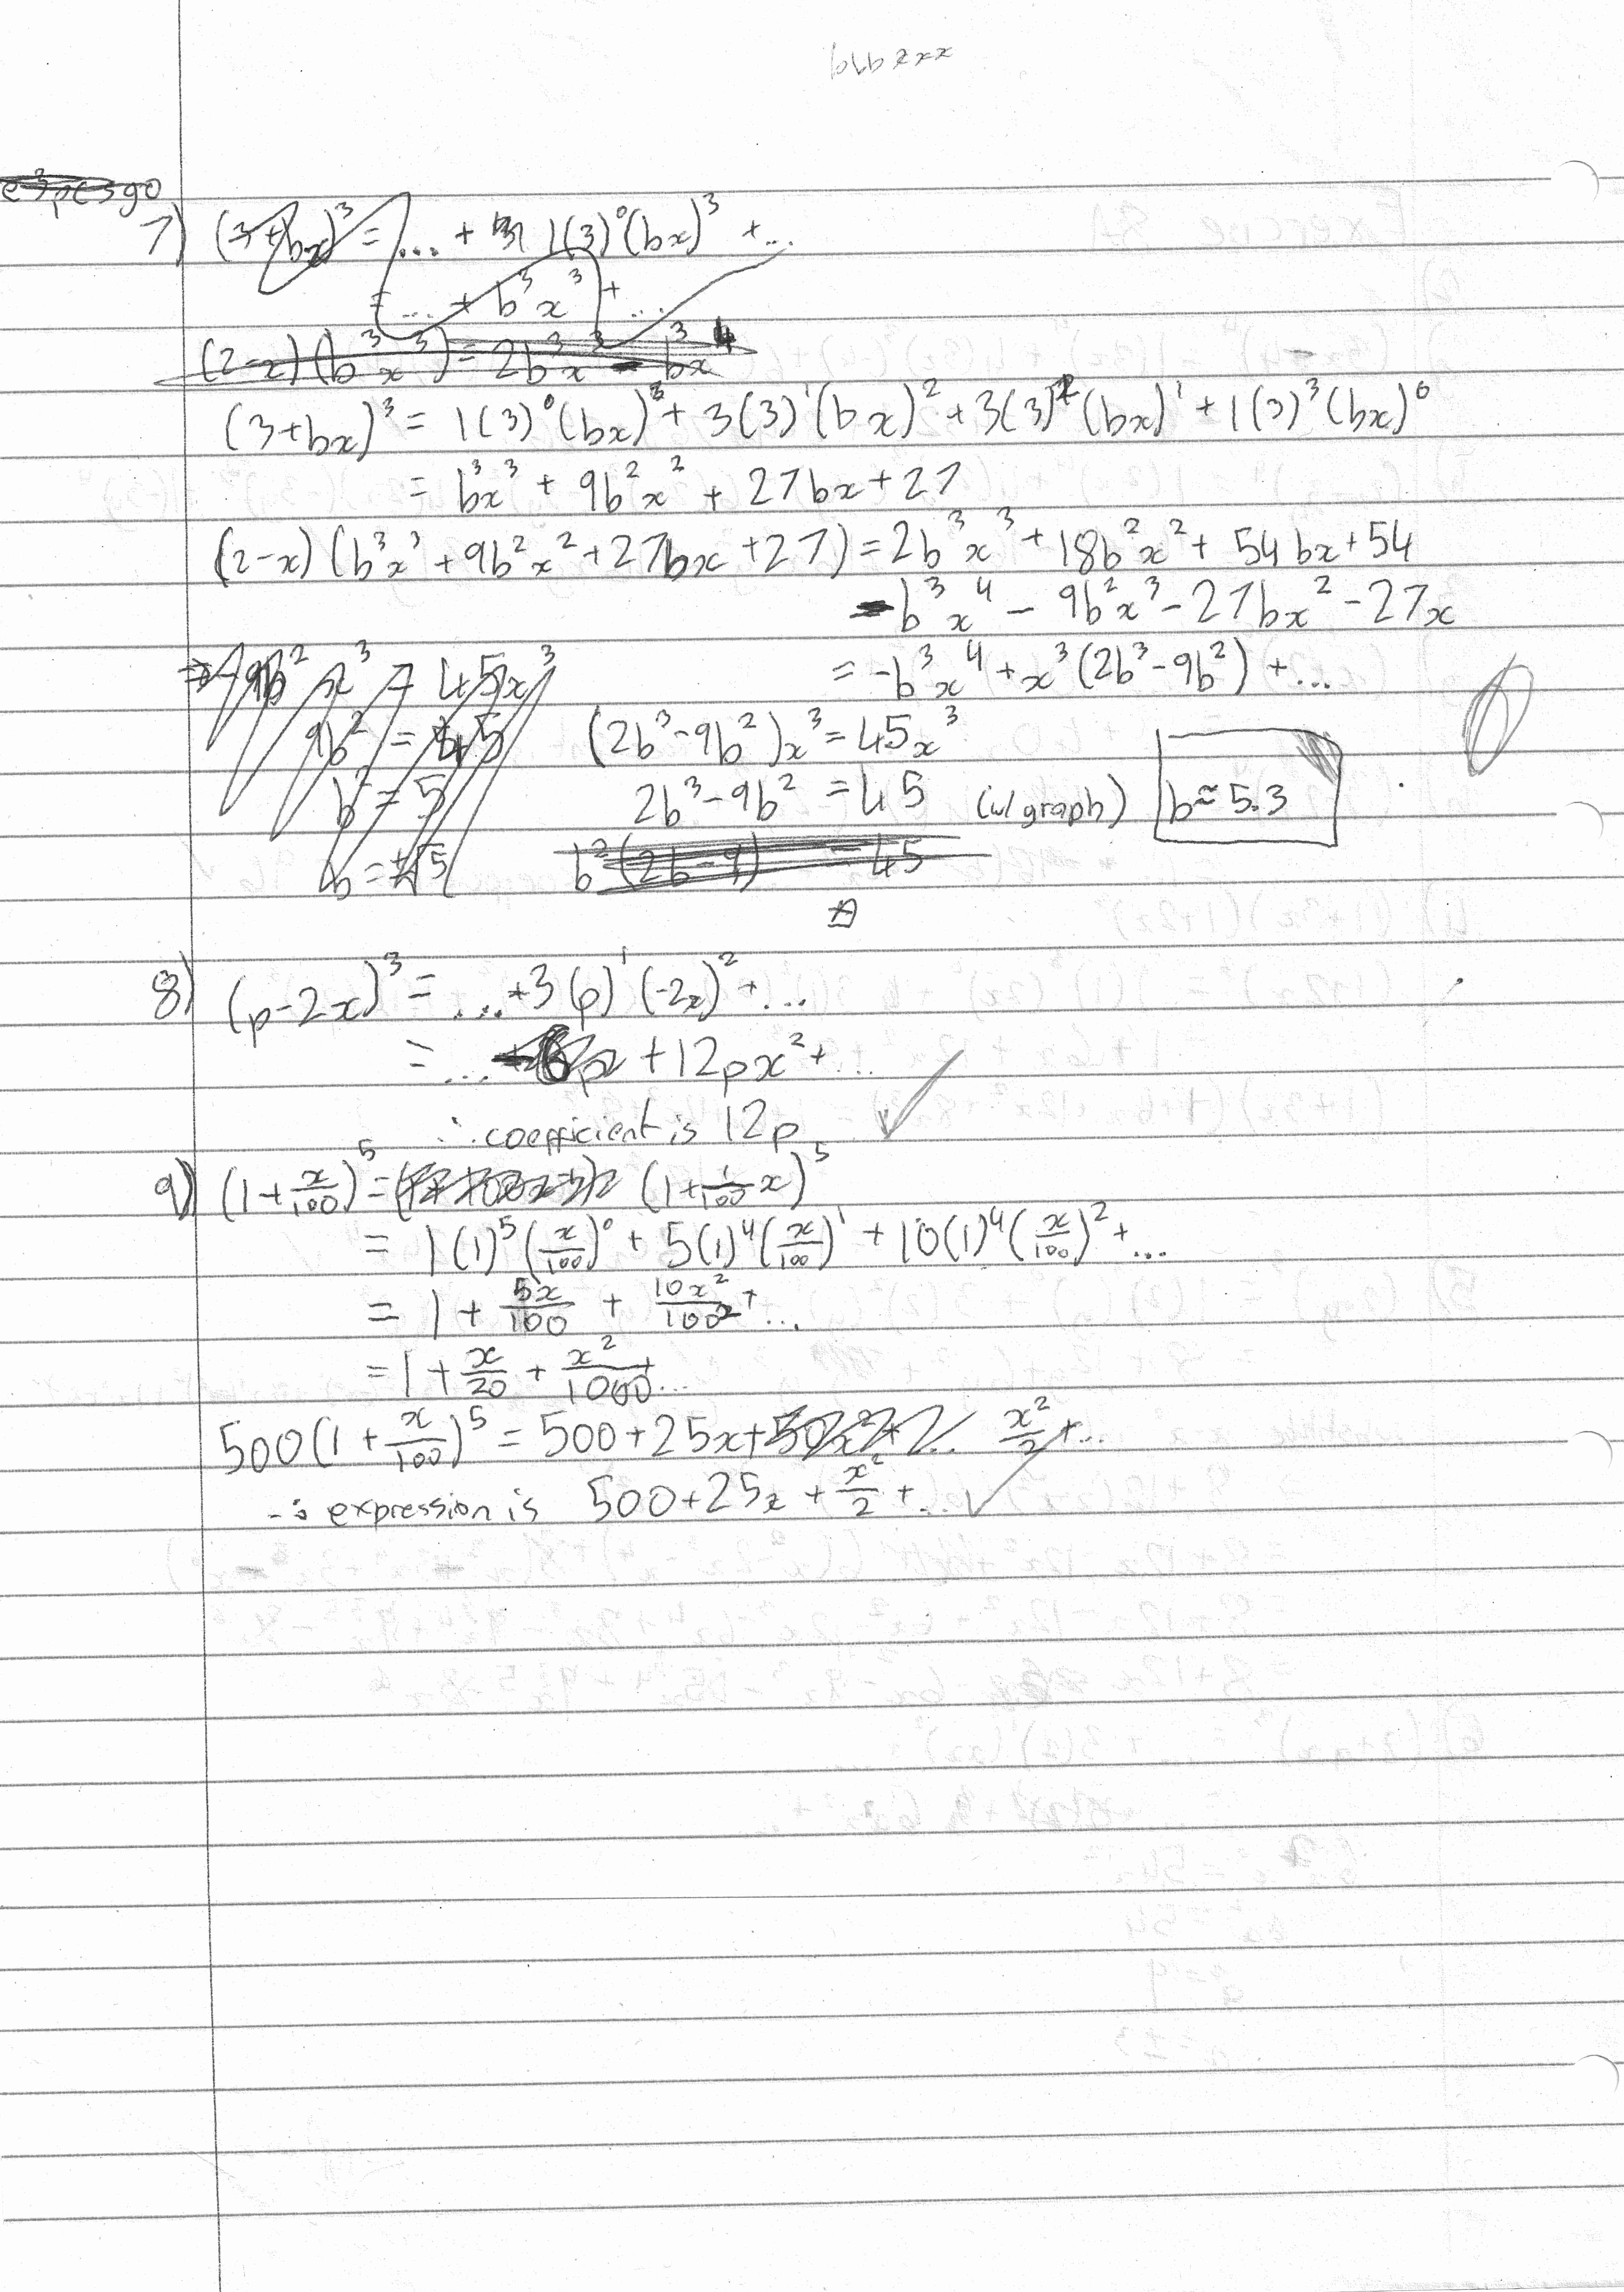 blbzxxx
7) (3+bx)³ = ... + 1(3)⁰(bx)³ + ...
= ... + b³x³ + ...
(2-x)(b³x³) = 2b³x³ - b³x⁴
(3+bx)³ = 1(3)⁰(bx)³ + 3(3)¹(bx)² + 3(3)²(bx)¹ + 1(3)³(bx)⁰
= b³x³ + 9b²x² + 27bx + 27
(2-x)(b³x³ + 9b²x² + 27bx + 27) = 2b³x³ + 18b²x² + 54bx + 54
- b³x⁴ - 9b²x³ - 27bx² - 27x
= -b³x⁴ + x³(2b³-9b²) + ...
⇒ -9b²x³ = 45x³
9b² = 45
b² = 5
b = ±√5
(2b³-9b²)x³ = 45x³
2b³-9b² = 45 (w/ graph) b≈5.3
b²(2b-9) = 45
8) (p-2x)³ = ... +3(p)¹(-2x)² + ...
= ... +12px² + ...
∴ coefficient is 12p ✓
9) (1+x/100)⁵ = (1+1/100 x)⁵
= 1(1)⁵(x/100)⁰ + 5(1)⁴(x/100)¹ + 10(1)⁴(x/100)² + ...
= 1 + 5x/100 + 10x²/100² + ...
= 1 + x/20 + x²/1000 + ...
500(1 + x/100)⁵ = 500+25x+ 50x²+... x²/2 + ...
∴ expression is 500+25x + x²/2 + ... ✓